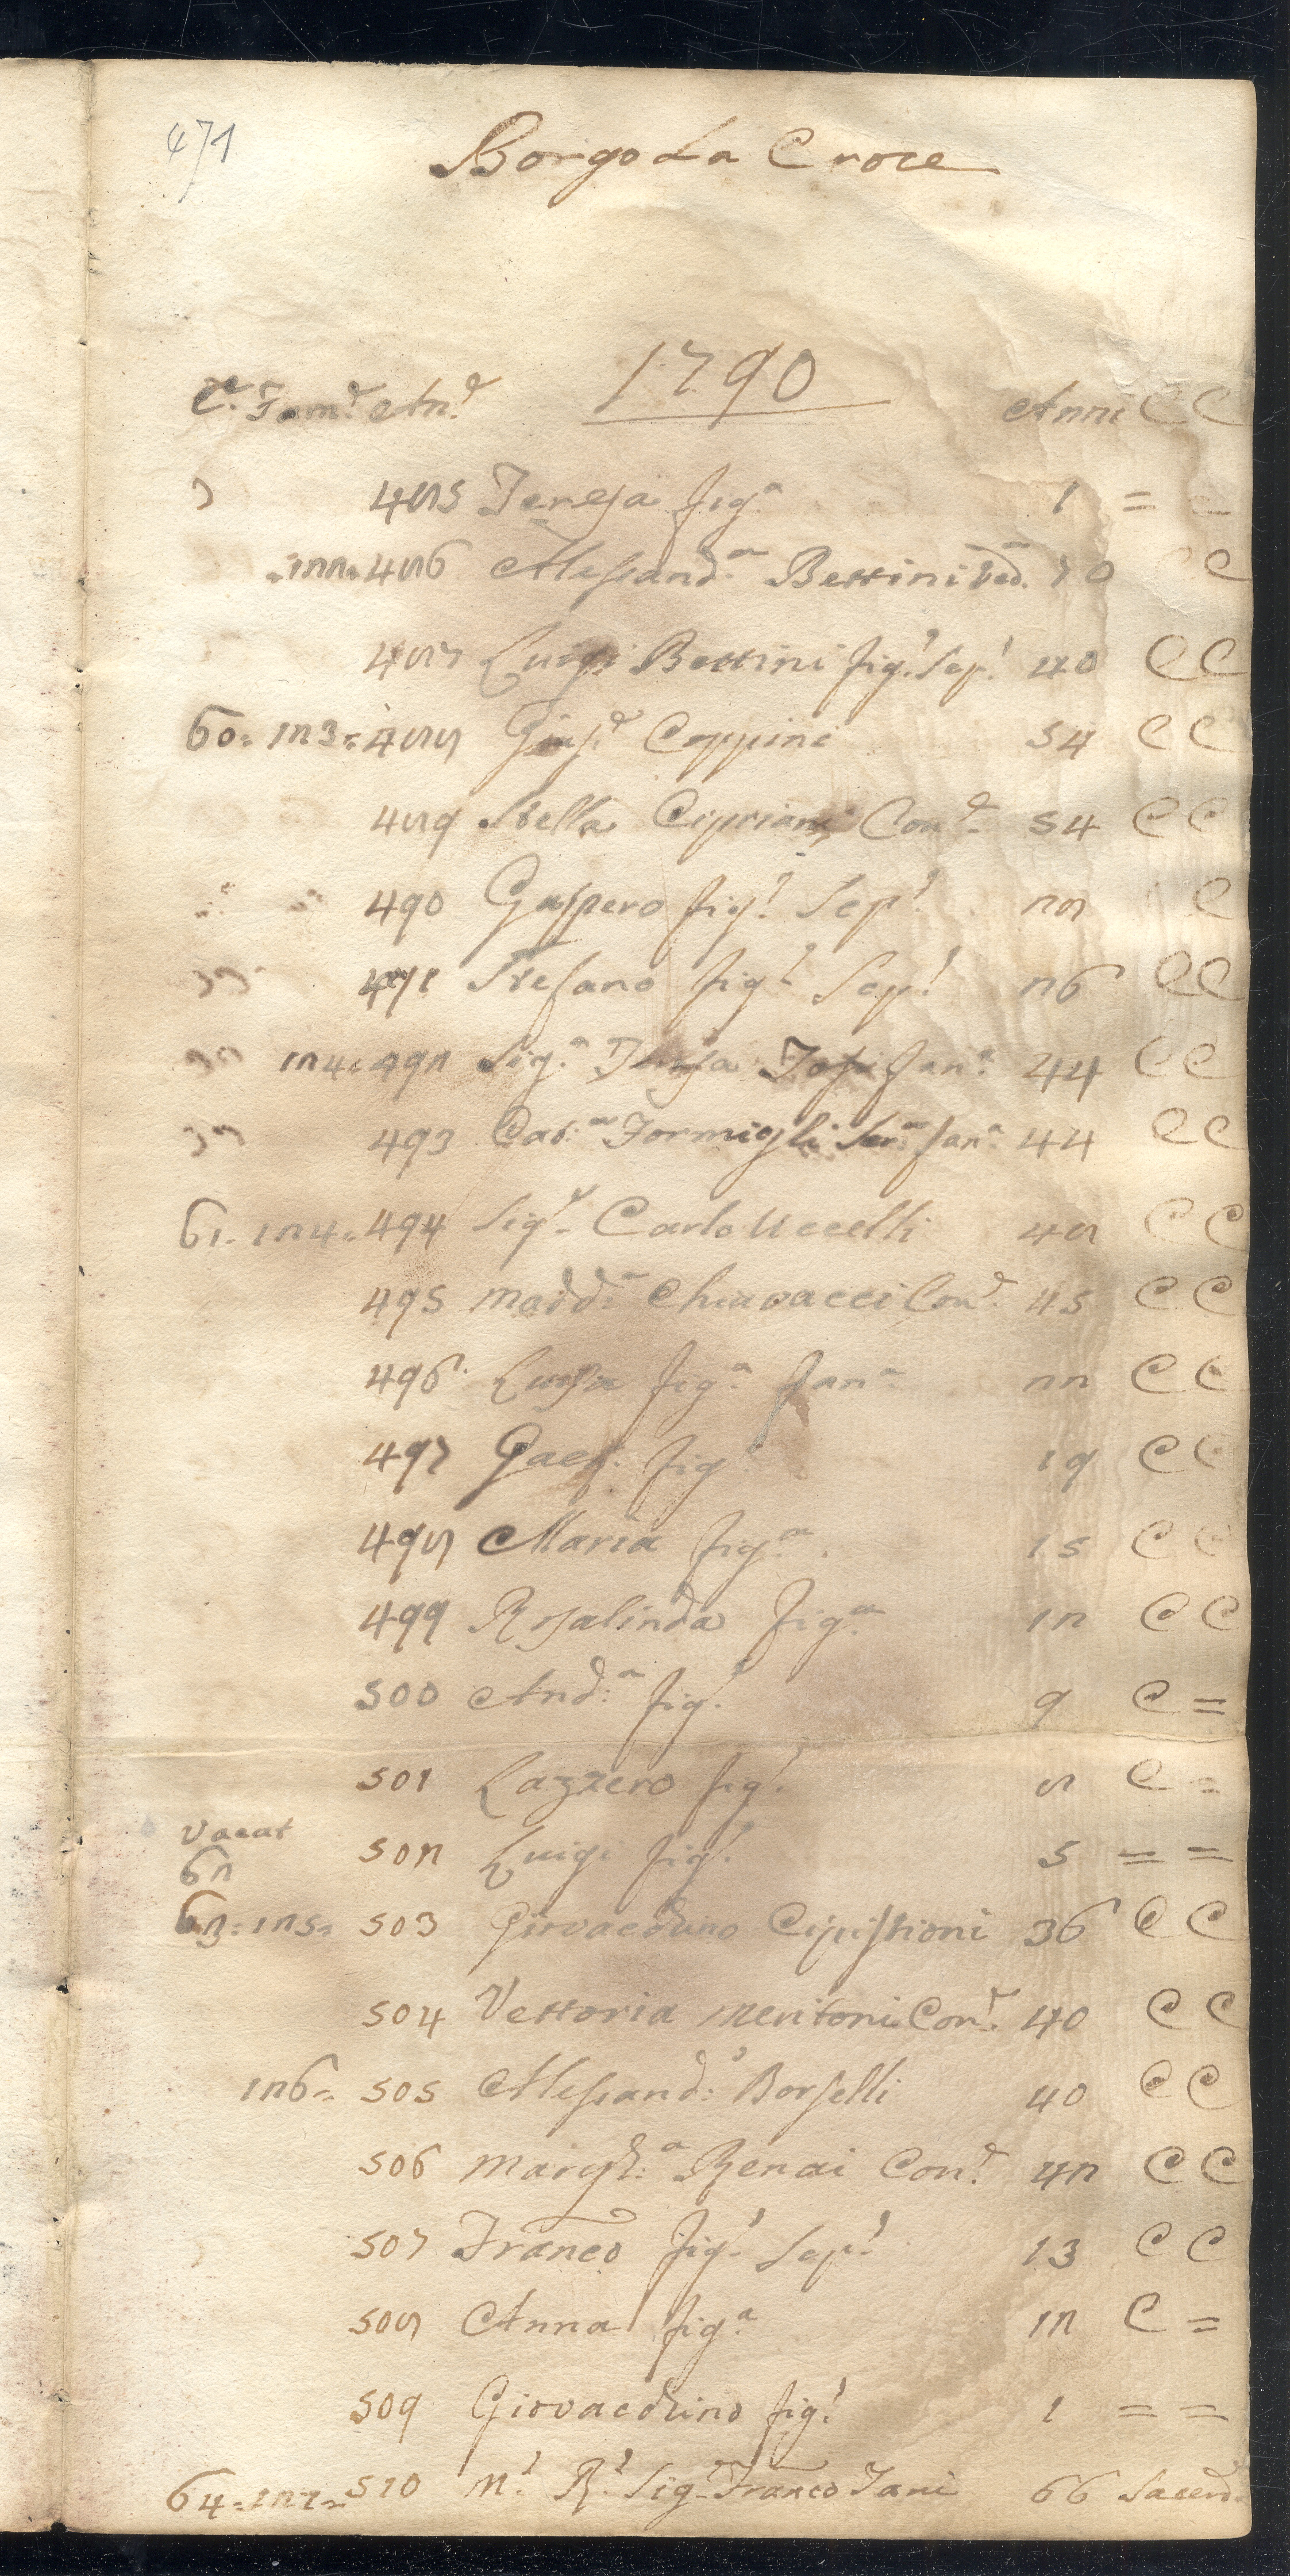 471
Borgo La Croce
1790
Ce. Fame. Ane. Anni C C
485 Teresa figa. 1 = =
122. 486 Alessanda. Bettini Ved. 70 C C
487 Luigi Bettini figo. Scpo. 40 C C
60. 123. 488 Giuse. Coppini 54 C C
489 Stella Cipriani Cone. 54 C C
490 Gaspero figo. Scpo. 28 C
491 Stefano figo. Scpo. 26 C C
124. 492 Siga. Teresa fana. 44 C C
493 Cata. Formigli Sera. fana. 44 C C
61. 124. 494 Sigr. Carlo Uccelli 48 C C
495 Madda. Chiavacci Cone. 45 C C
496 Luisa figa. fana. 22 C C
497 Gaeto. figo. 19 C C
498 Maria figa. 15 C C
499 Rosalinda figa. 12 C C
500 Anda. figo. 9 C =
501 Lazzero figo. 8 C =
Vacat
62
502 Luigi figo. 5 = =
63. 125. 503 Giovacchino Cipistrioni 36 C C
504 Vettoria Meritoni Cone. 40 C C
126. 505 Alessando. Borselli 40 C C
506 Margha. Renai Cone. 42 C C
507 Franco figo. Scpo. 13 C C
508 Anna figa. 12 C =
509 Giovacchino figo. 1 = =
64. 127. 510 Mo. Ro. Sigr. Franco Tani 66 Sacerd.